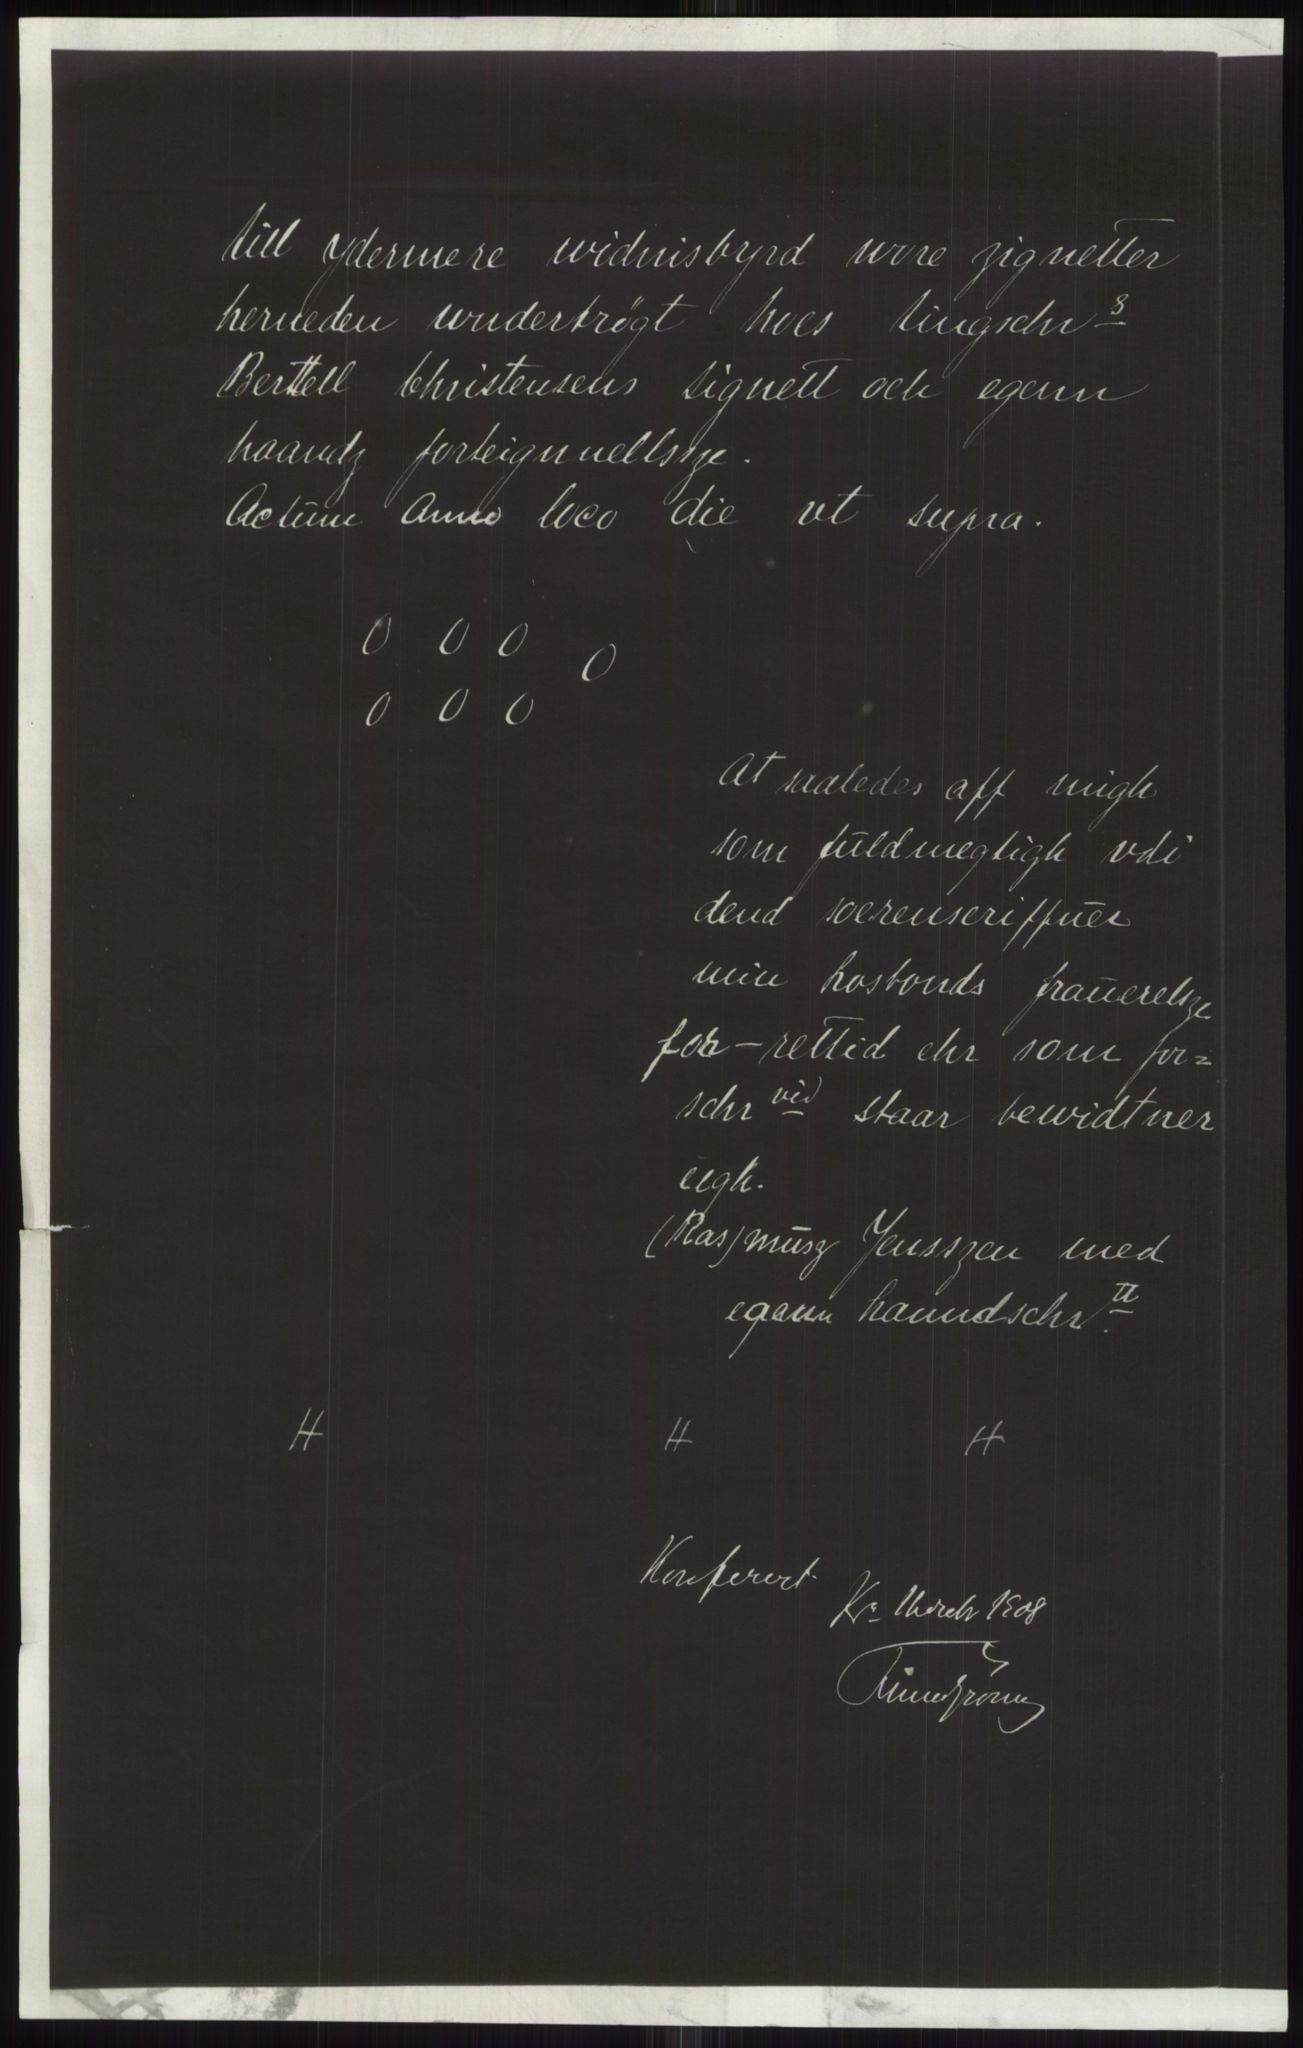 till ydermere widnisbyrd wore zignetter
herneden wndertrøgt hoes tingschr s
Berttell Christensens signett och egenn
haandz forteignnellsze.
Actum Anno loco die vt supra.
O O O O
O O O
At saaledes aff migh
som fuldmegtigh vdi
dend soerenscriffuer
min hosbonds frauerelsze
for-rettid ehr som for=
schr vid staar bewidtner
iegh.
(Ras)musz Jensszen med
egenn hanndschr tt.
H H H
Konferert.
Kr. March 1908